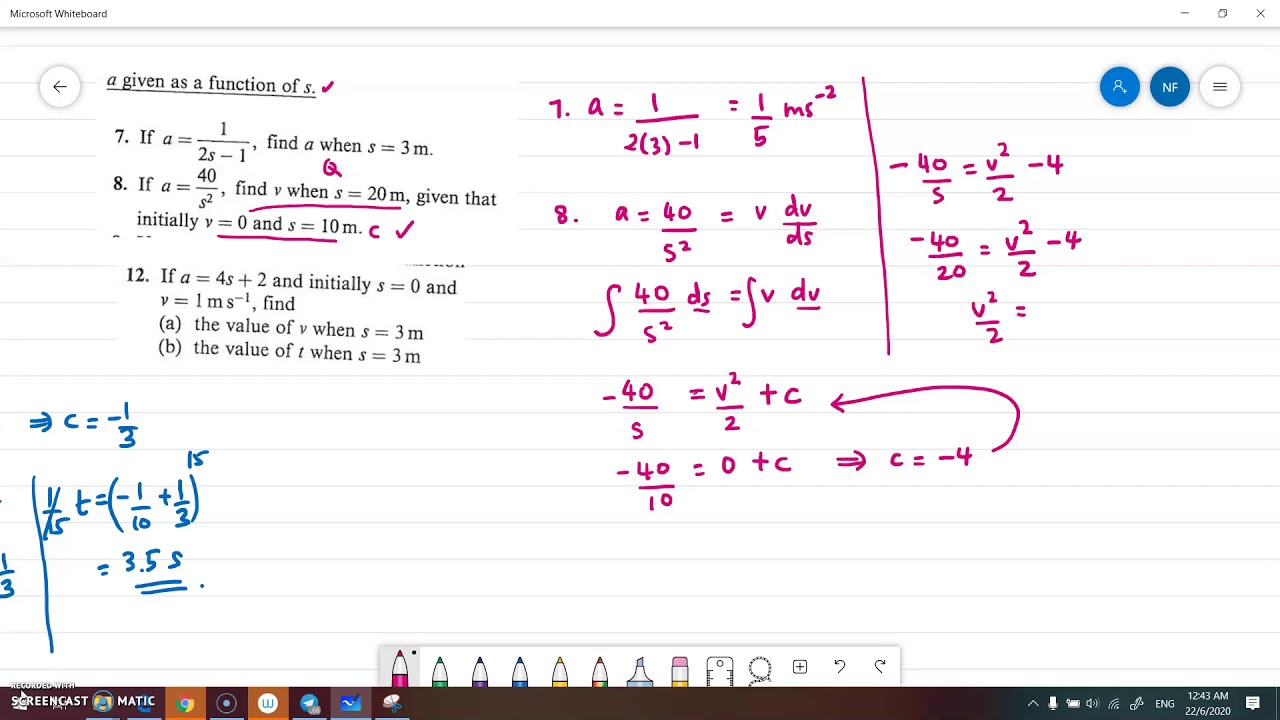 Microsoft Whiteboard
NF
a given as a function of s. ✓
7. If a = 1/(2s − 1), find a when s = 3 m.
Q
8. If a = 40/s², find v when s = 20 m, given that
initially v = 0 and s = 10 m. C ✓
12. If a = 4s + 2 and initially s = 0 and
v = 1 m s⁻¹, find
(a) the value of v when s = 3 m
(b) the value of t when s = 3 m
⇒ c = -1/3
15
1/15 t = (-1/10 + 1/3)
= 3.5 s
1/3
7. a = 1/(2(3) -1) = 1/5 ms⁻²
8. a = 40/s² = v dv/ds
∫ 40/s² ds = ∫ v dv
-40/s = v²/2 + c
-40/10 = 0 + c ⇒ c = -4
-40/s = v²/2 - 4
-40/20 = v²/2 - 4
v²/2 =
RECORDED WITH
SCREENCAST MATIC
ENG
12:43 AM
22/6/2020